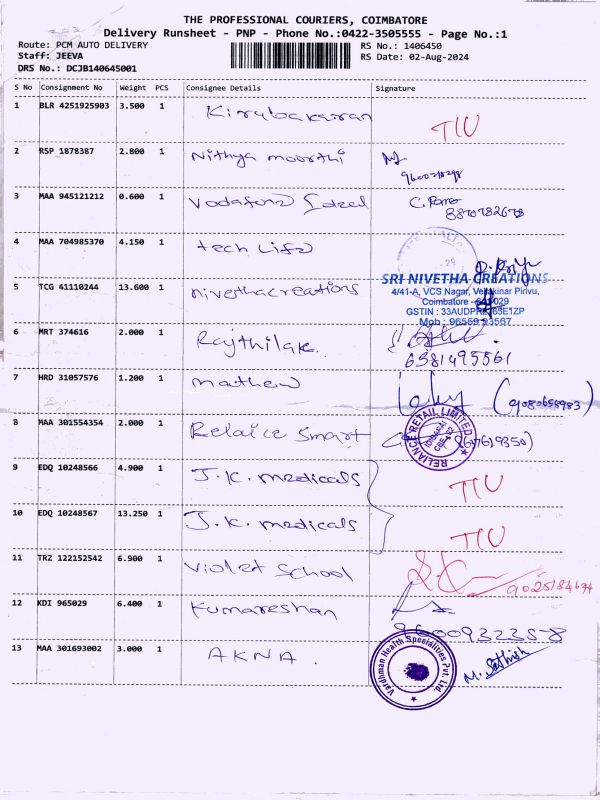 THE PROFESSIONAL COURIERS, COIMBATORE
Delivery Runsheet - PNP - Phone No.:0422-3505555 - Page No.:1
Route: PCM AUTO DELIVERY RS No.: 1406450
Staff: JEEVA RS Date: 02-Aug-2024
DRS No.: DCJB140645001
S No Consignment No Weight PCS Consignee Details Signature
1 BLR 4251925903 3.500 1 Kirubakaran TIU
2 RSP 1878387 2.800 1 Nithya moorthi
3 MAA 945121212 0.600 1 Vodafone 8870782678
4 MAA 704985370 4.150 1 tech Life
5 TCG 41110244 13.600 1 nivethacreations
SRI NIVETHA CREATIONS
4/41-A, VCS Nagar, Vellakinar Pirivu,
Coimbatore - 641 029
GSTIN :
Mob :
6 MRT 374616 2.000 1 Rajthilak 6381495561
7 HRD 31057576 1.200 1 mathew (9080658983)
8 MAA 301554354 2.000 1 Relaice Smart
RELIANCE RETAIL LIMITED
9 EDQ 10248566 4.900 1 J.K. medicals TIU
10 EDQ 10248567 13.250 1 J.K. medicals TIU
11 TRZ 122152542 6.900 1 Violet School
12 KDI 965029 6.400 1 Kumareshan 9600932358
13 MAA 301693002 3.000 1 AKNA. M. Sathish
Vardhman Health Specialities Pvt. Ltd.